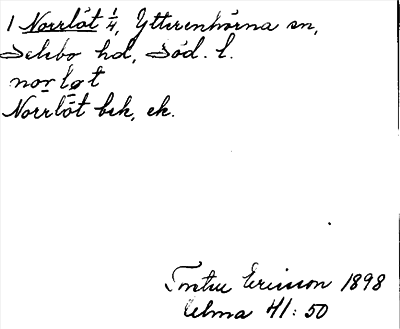 1 Norrlöt 1/4, Ytterenhörna sn,
Selebo hd, Söd. l.
norløt
Norrlöt bsk, ek.
Ericsson 1898
Celma 41:50